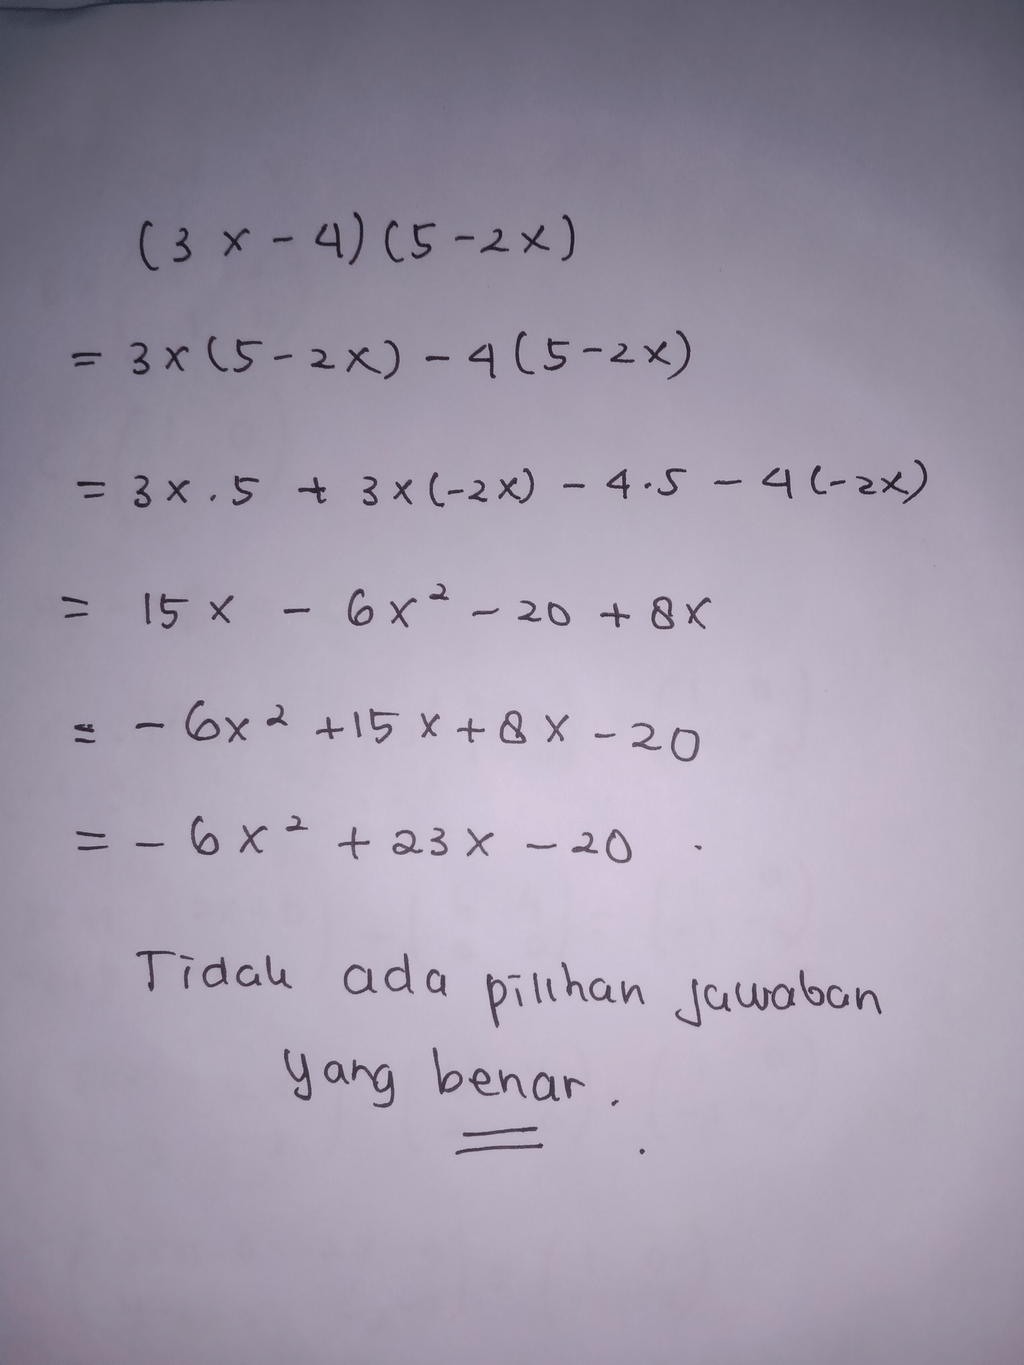 (3x - 4)(5 - 2x)
= 3x(5 - 2x) - 4(5 - 2x)
= 3x . 5 + 3x(-2x) - 4.5 - 4(-2x)
= 15x - 6x² - 20 + 8x
= - 6x² + 15x + 8x - 20
= - 6x² + 23x - 20 .
Tidak ada pilihan jawaban
yang benar.